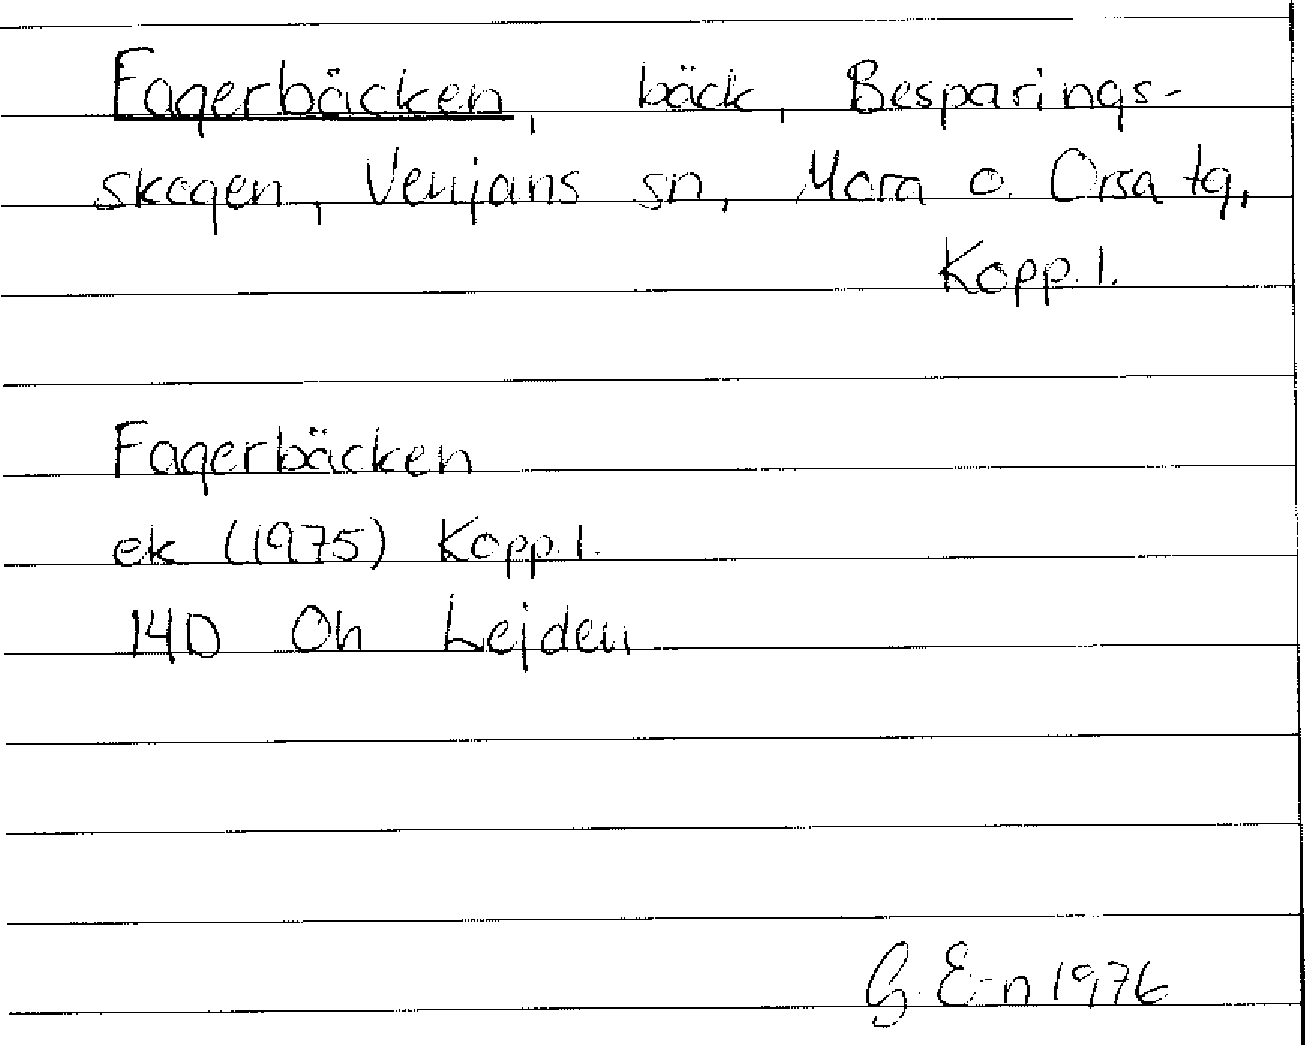 Fagerbäcken, bäck, Besparings-
skogen, Venjans sn, Mora o. Orsa tg,
Kopp. l.
Fagerbäcken
ek (1975) Kopp. l.
14D Öh Lejden
G. E-n 1976